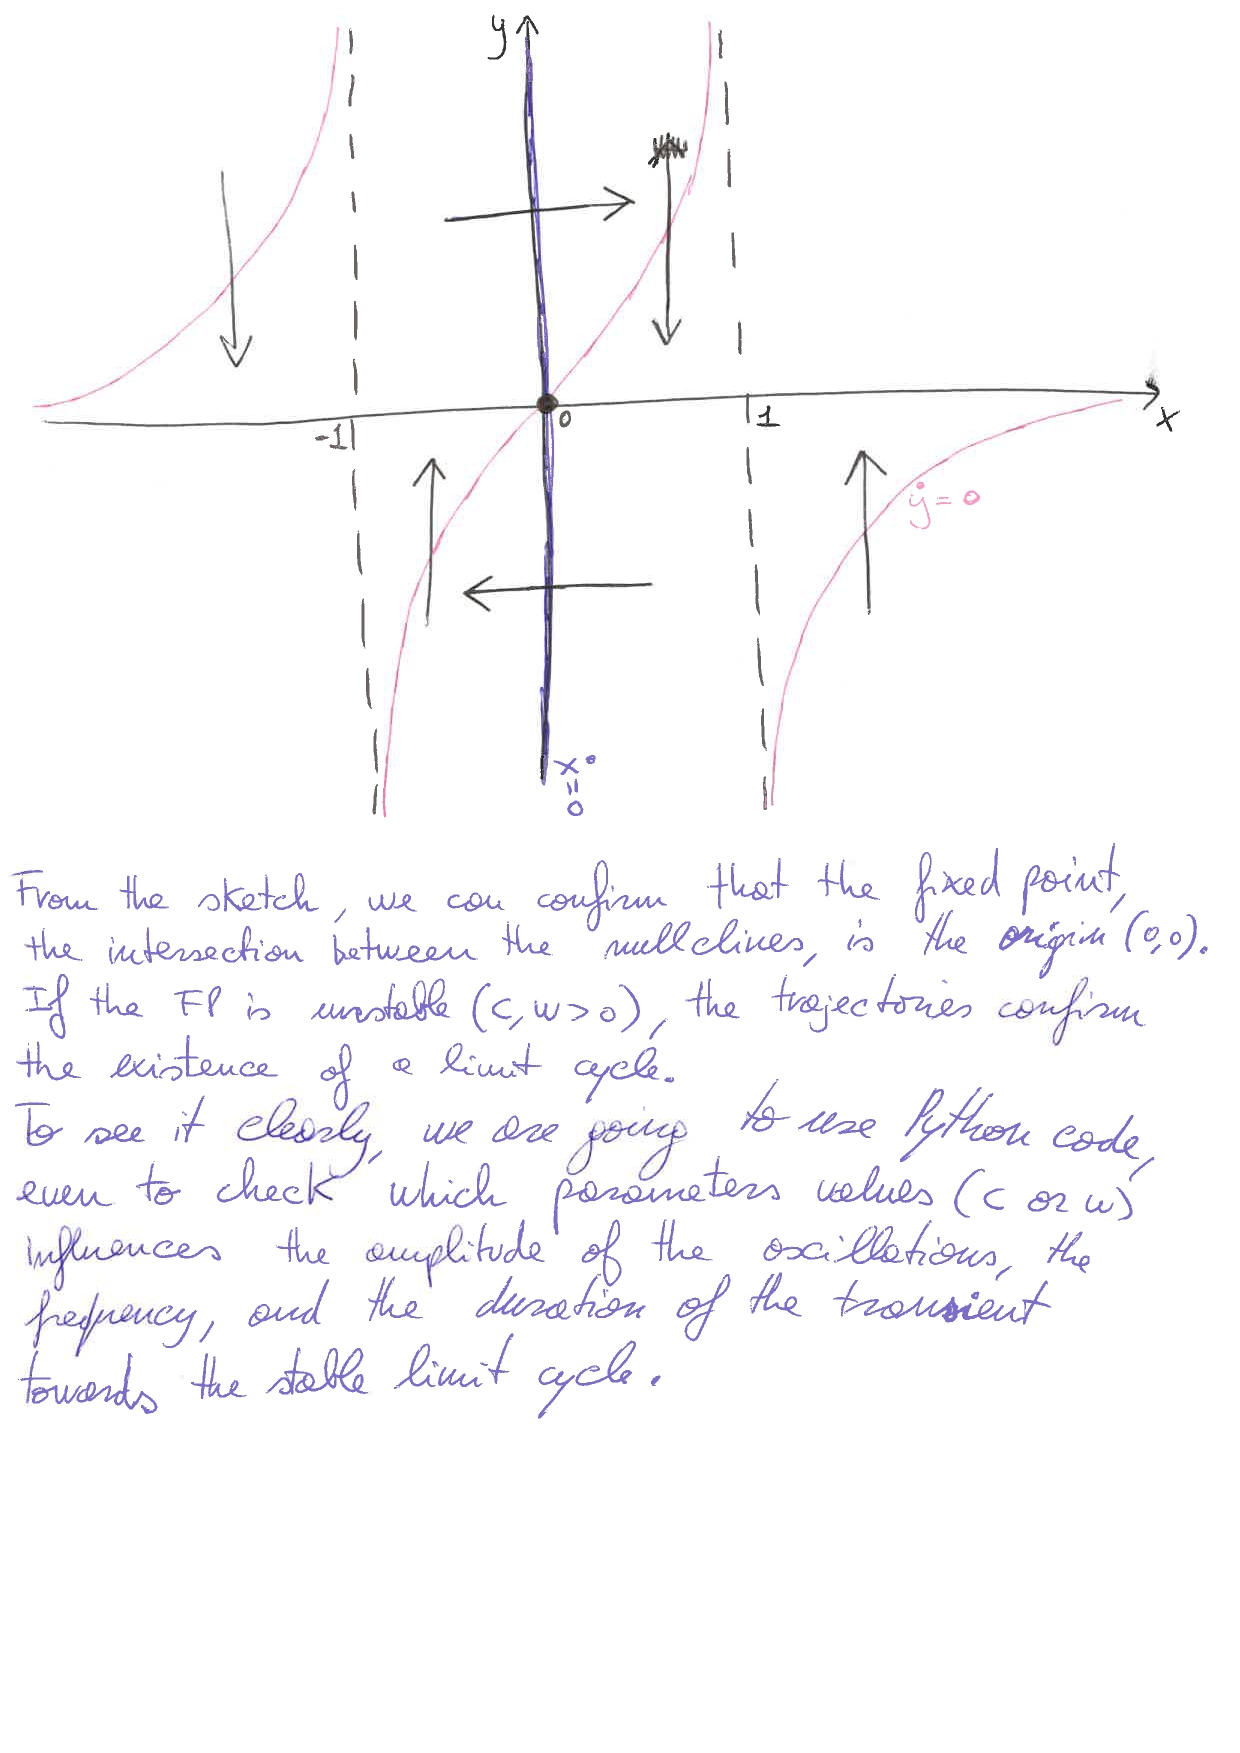 y
-1
0
1
x
ẏ = 0
ẋ = 0
From the sketch, we can confirm that the fixed point,
the intersection between the nullclines, is the origin (0,0).
If the FP is unstable (c, w > 0), the trajectories confirm
the existence of a limit cycle.
To see it clearly, we are going to use Python code,
even to check which parameters values (c or w)
influences the amplitude of the oscillations, the
frequency, and the duration of the transient
towards the stable limit cycle.